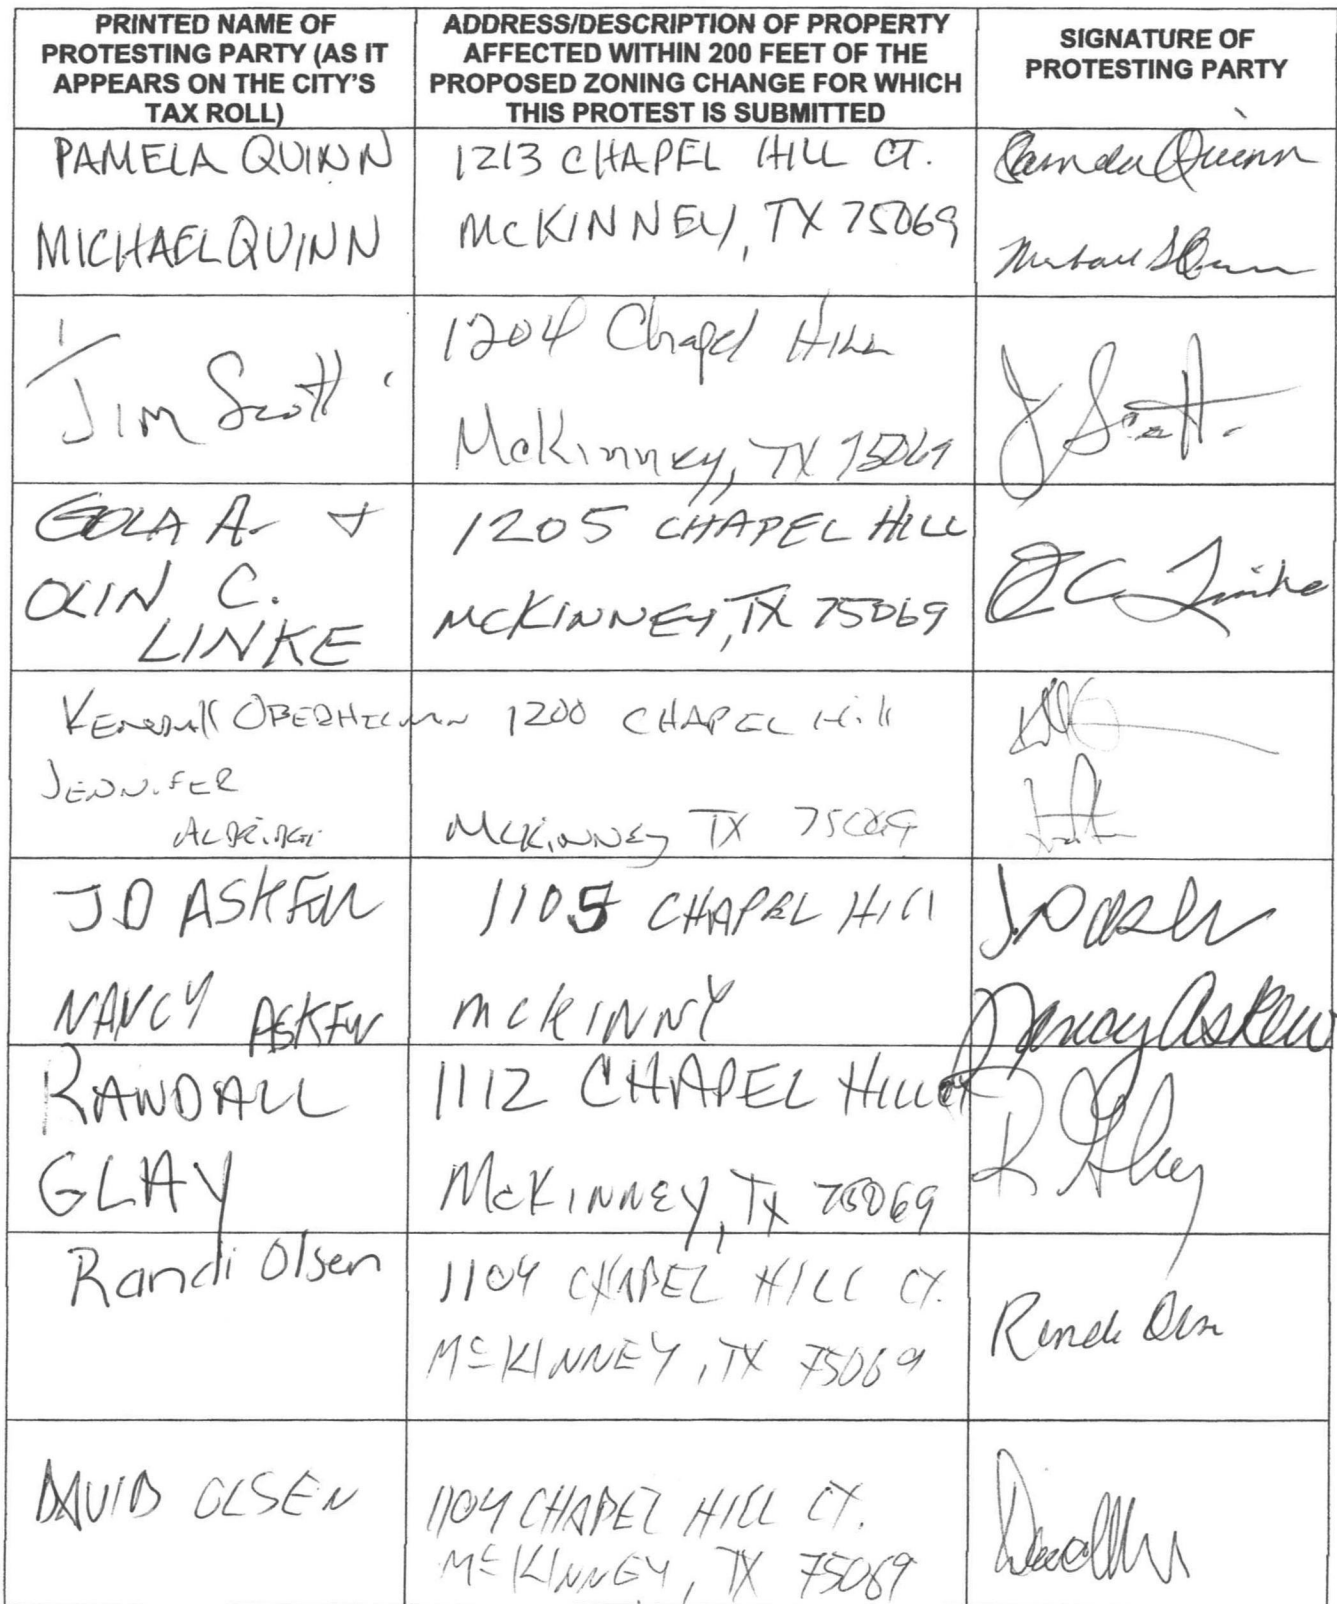 PRINTED NAME OF
PROTESTING PARTY (AS IT
APPEARS ON THE CITY'S
TAX ROLL)
ADDRESS/DESCRIPTION OF PROPERTY
AFFECTED WITHIN 200 FEET OF THE
PROPOSED ZONING CHANGE FOR WHICH
THIS PROTEST IS SUBMITTED
SIGNATURE OF
PROTESTING PARTY
PAMELA QUINN
MICHAEL QUINN
1213 CHAPEL HILL CT.
MCKINNEY, TX 75069
Pamela Quinn
Jim Scott
1204 Chapel Hill
McKinney, TX 75069
J Scott
EOLA A. +
OLIN C.
LINKE
1205 CHAPEL HILL
MCKINNEY, TX 75069
O C Linke
KENDALL OBERHELMAN
JENNIFER
1200 CHAPEL Hill
McKINNEY TX 75069
JD ASKEW
NANCY ASKEW
1105 CHAPEL Hill
MCKINNY
J.D Askew
Nancy Askew
RANDALL
GLAY
1112 CHAPEL HILL CT
McKINNEY, TX 75069
R Glay
Randi Olsen
1104 CHAPEL HILL CT.
McKINNEY, TX 75069
Randi Olsen
DAVID OLSEN
1104 CHAPEL HILL CT.
McKINNEY, TX 75069